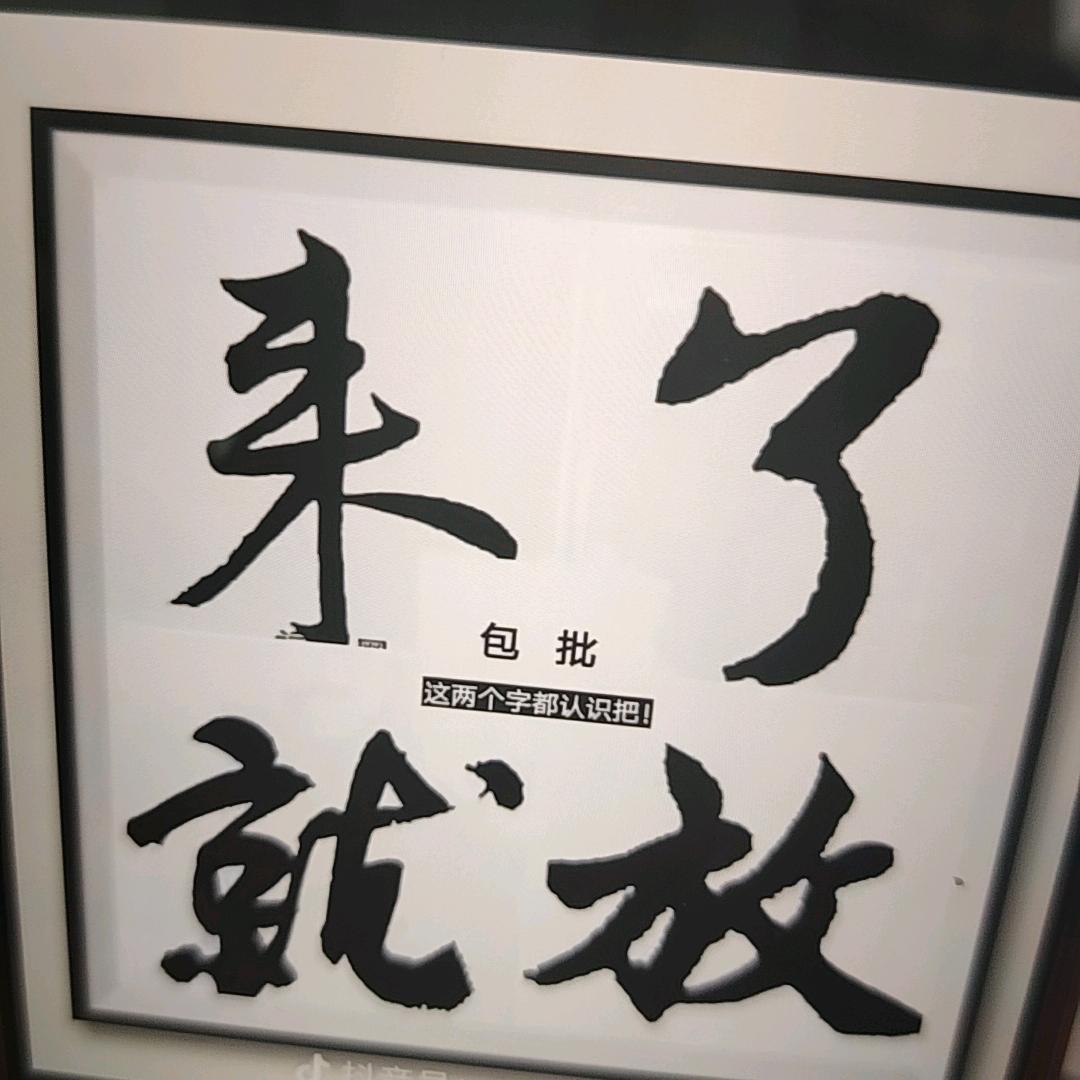 来了
包 批
这两个字都认识把!
就放
抖音号